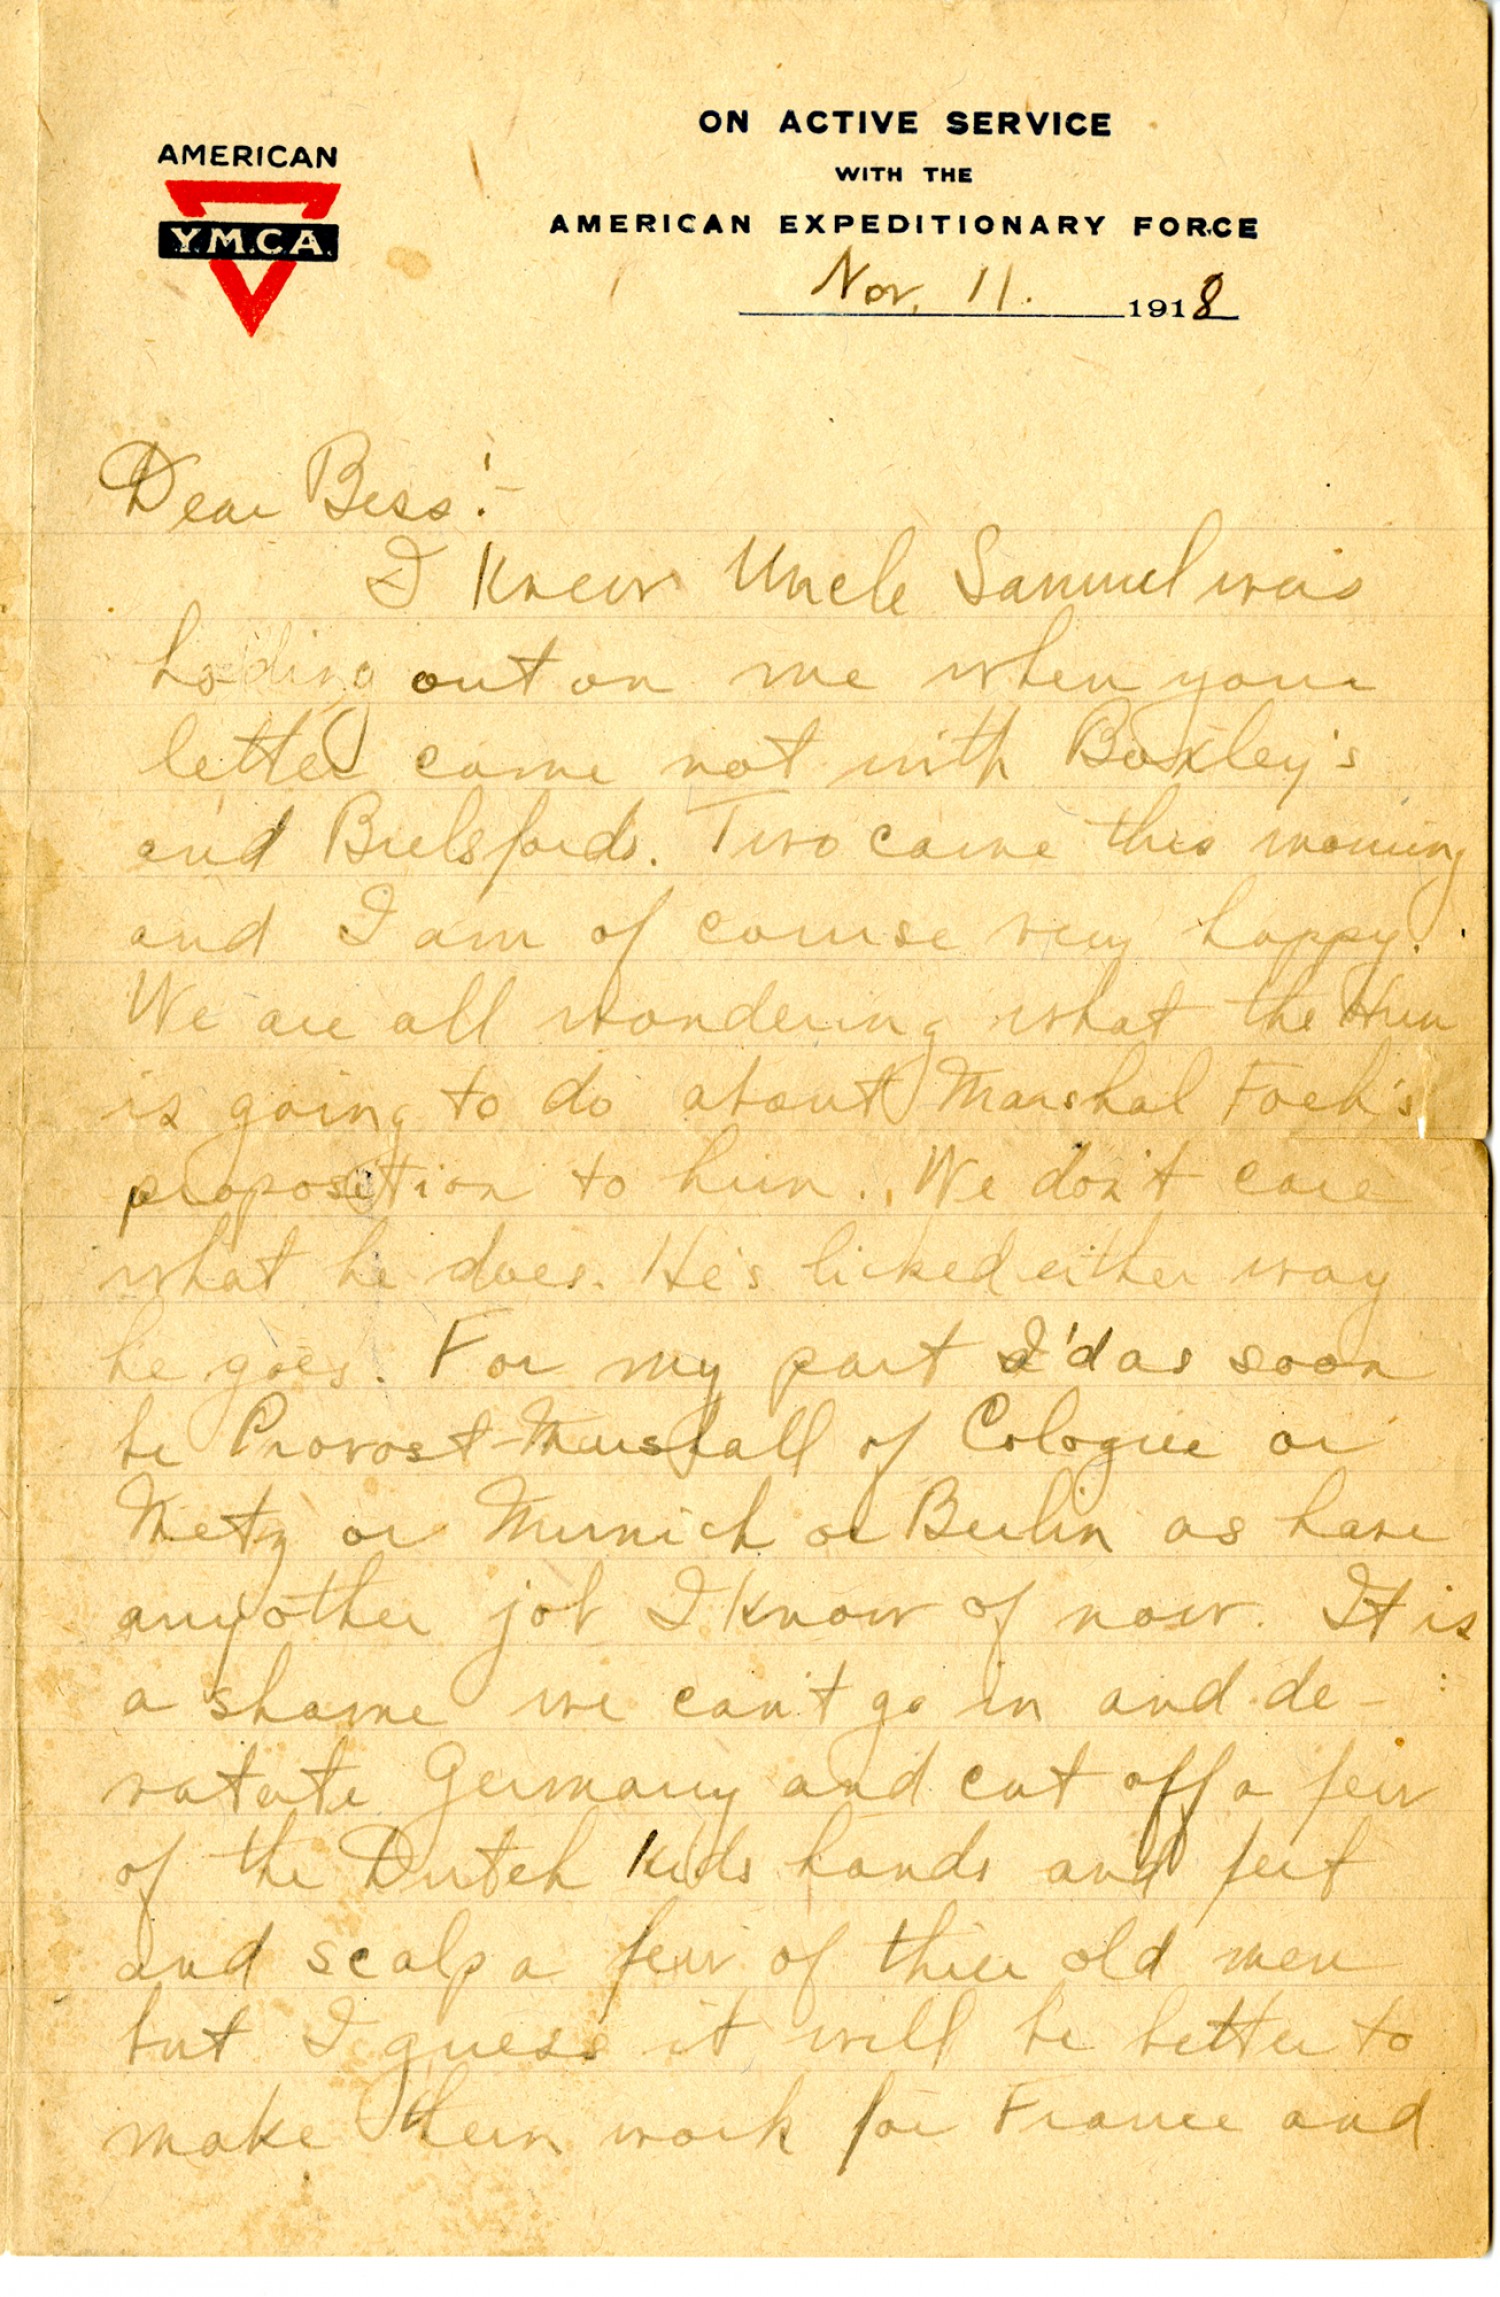 ON ACTIVE SERVICE
WITH THE
AMERICAN EXPEDITIONARY FORCE
AMERICAN
Y.M.C.A.
Nov. 11. 1918
Dear Bess:-
I knew Uncle Samuel was
holding out on me when your
letter came not with Boxley's
and Bielsfords. Two came this morning
and I am of course very happy.
We are all wondering what the Hun
is going to do about Marshal Foch's
proposition to him. We don't care
what he does. He's licked either way
he goes. For my part I'd as soon
be Provost-Marshall of Cologne or
Metz or Munich or Berlin as have
any other job I know of now. It is
a shame we can't go in and de-
vatate Germany and cut off a few
of the Dutch kids hands and feet
and scalp a few of thier old men
but I guess it will be better to
make them work for France and